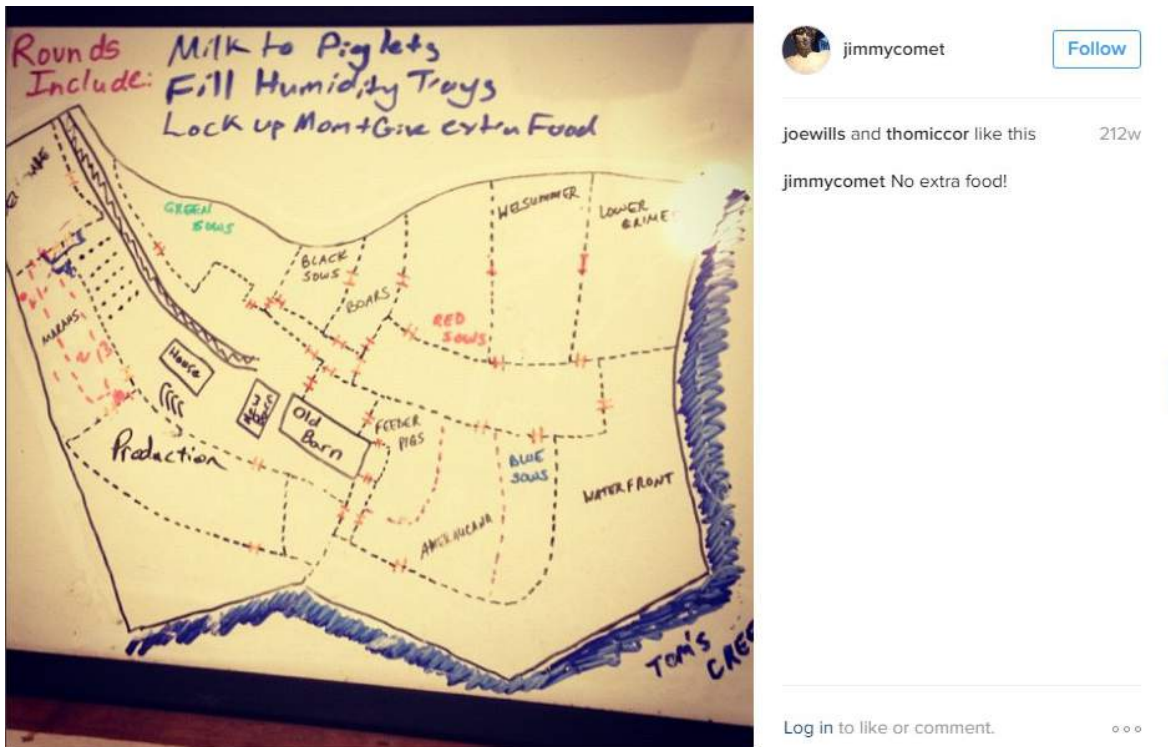 Rounds
Include:
Milk to Piglets
Fill Humidity Trays
Lock up Mom + Give extra Food
GREEN
SOWS
BLACK
SOWS
BOARS
WELSUMMER
LOWER
RED
SOWS
MARANS
House
Old
Barn
FEEDER
PIGS
Production
BLUE
SOWS
WATERFRONT
AMERAUCANA
TOM'S
CREE
jimmycomet
Follow
joewills and thomiccor like this
212w
jimmycomet No extra food!
Log in to like or comment.